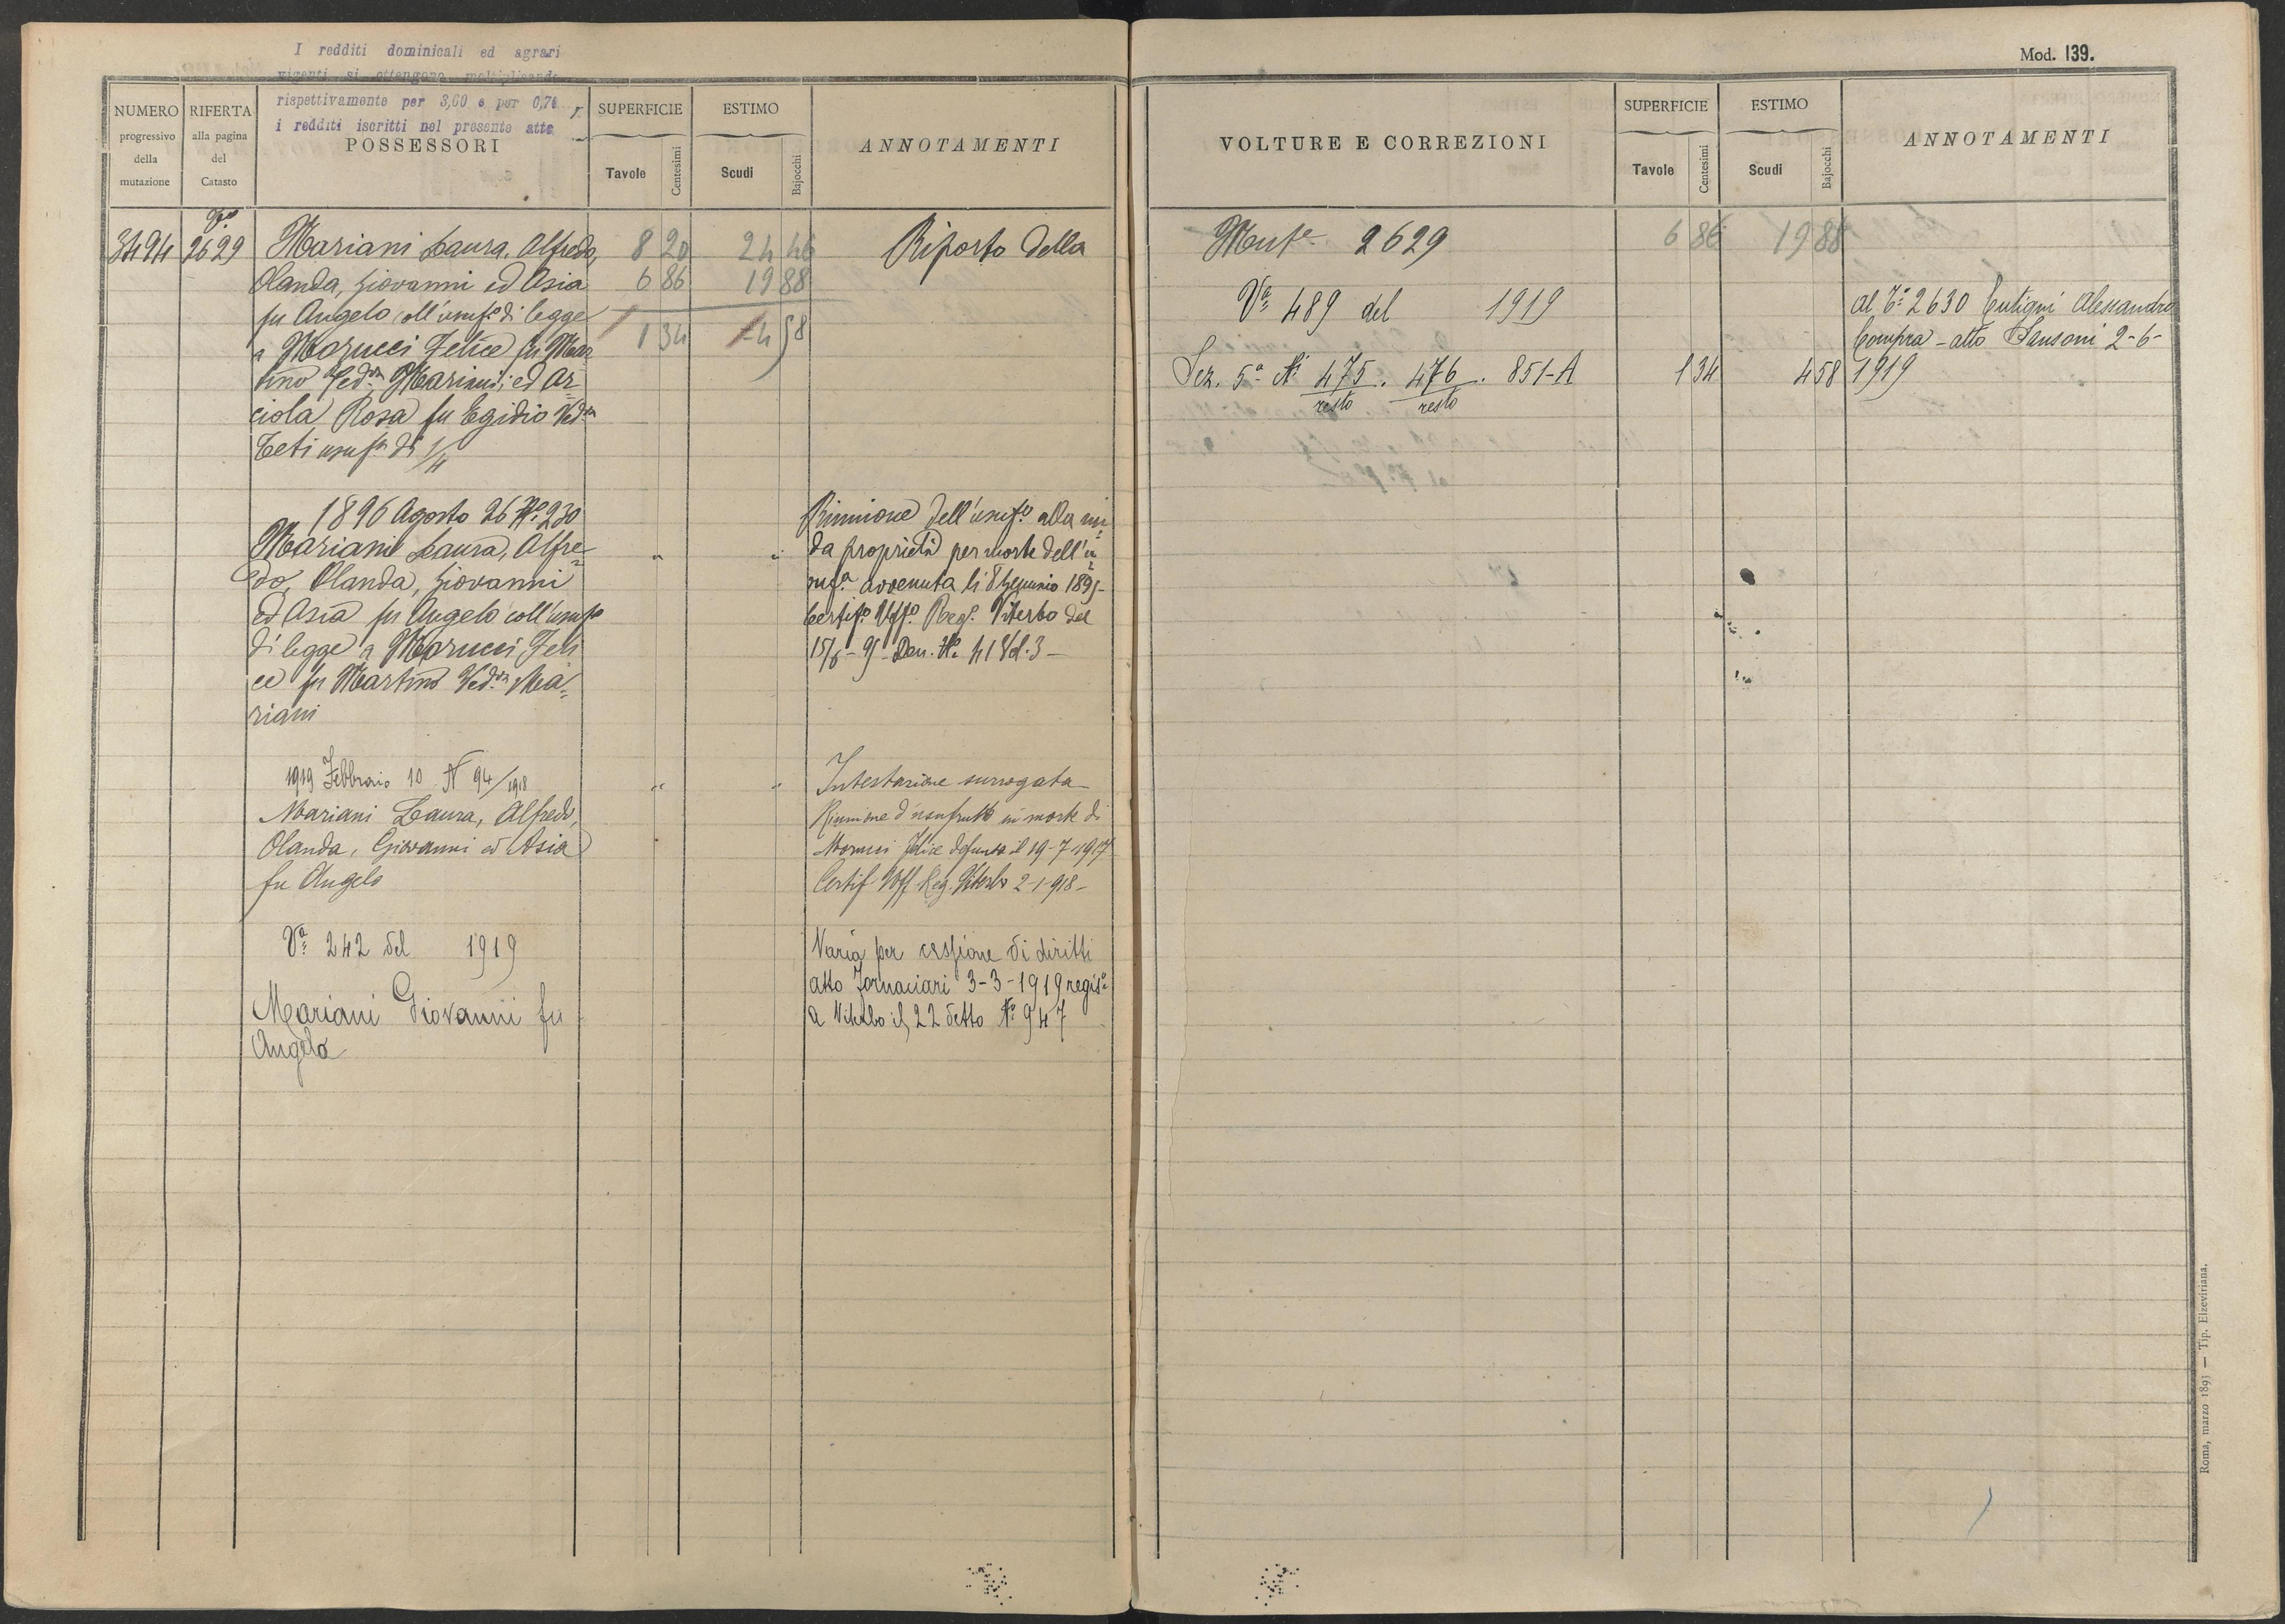 I redditi dominicali ed agrari
vigenti si ottengono moltiplicando
rispettivamente per 3,60 e per 0,76
i redditi iscritti nel presente atto
NUMERO
progressivo
della
mutazione
RIFERTA
alla pagina
del
Catasto
POSSESSORI
SUPERFICIE
Tavole
Centesimi
ESTIMO
Scudi
Bajocchi
ANNOTAMENTI
3494 2629 Mariani Laura, Alfredo, 8 20 24 46 Riporto della
Olanda, Giovanni ed Asia 6 86 19 88
fu Angelo coll'usufo di legge 1 34 4 58
a Morucci Felice fu Mar
tino Vedva Mariani; ed Ar
ciola Rosa fu Egidio Vedva
Teti usufa di 1/4
1896 Agosto 26 No 230
Mariani Laura, Alfre=
do, Olanda, Giovanni
ed Asia fu Angelo coll'usufo
di legge a Morucci Feli
ce fu Martino Vedva Ma=
riani
Riunione dell'usufo alla nu
da proprietà per morte dell'u
sufa avvenuta li 8 Gennio 1895
Certifo Uffo Rego Viterbo del
15/6-95 Den. No 41 Vol. 3-
1919 Febbraio 10 N 94/1918
Mariani Laura, Alfredo,
Olanda, Giovanni ed Asia
fu Angelo
Intestazione surrogata
Riunione d'usufrutto in morte di
Morucci Felice defunta il 19-7-1917
Certif Uff Reg. Viterbo 2-1-918-
Va 242 del 1919
Mariani Giovanni fu
Angelo
Varia per cessione di diritti
atto Fornaciari 3-3-1919 regiso
a Viterbo il 22 detto No 947
Mod. 139.
VOLTURE E CORREZIONI
SUPERFICIE
Tavole
Centesimi
ESTIMO
Scudi
Bajocchi
ANNOTAMENTI
Mute 2629 6 86 19 88
Va 489 del 1919
Sez. 5a No 475 . 476 . 851-A 1 34 4 58
resto resto
al To 2630 Alessandro
Compra - atto Sansoni 2-6-
1919
Roma, marzo 1893 — Tip. Elzeviriana.